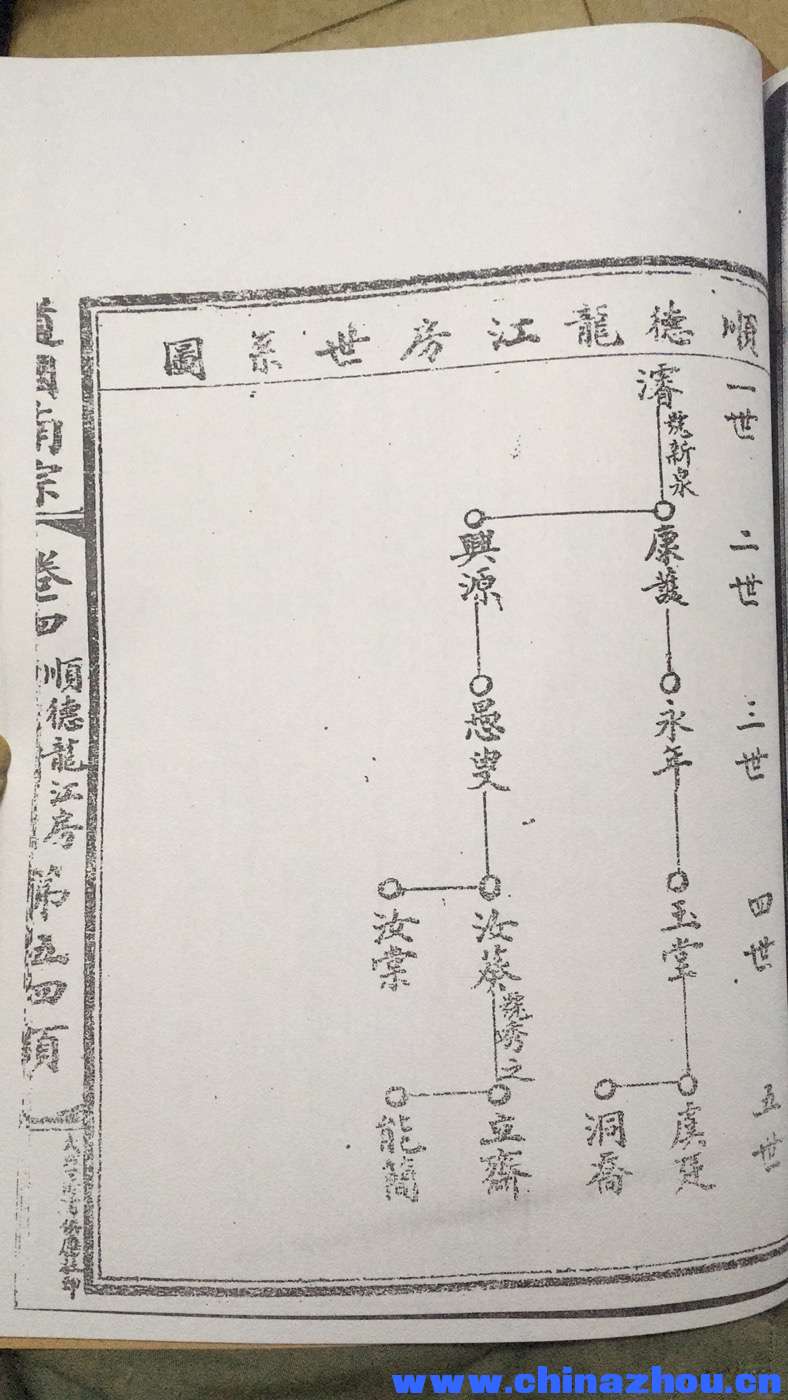 順德龍江房世系圖
一世
濬 號新泉
二世
康護
興源
三世
永年
愚叟
四世
玉堂
汝葵 號秀之
汝棠
五世
虞廷
洞喬
立齋
能簡
道國南宗
卷四
順德龍江房
第五四頁
www.chinazhou.cn